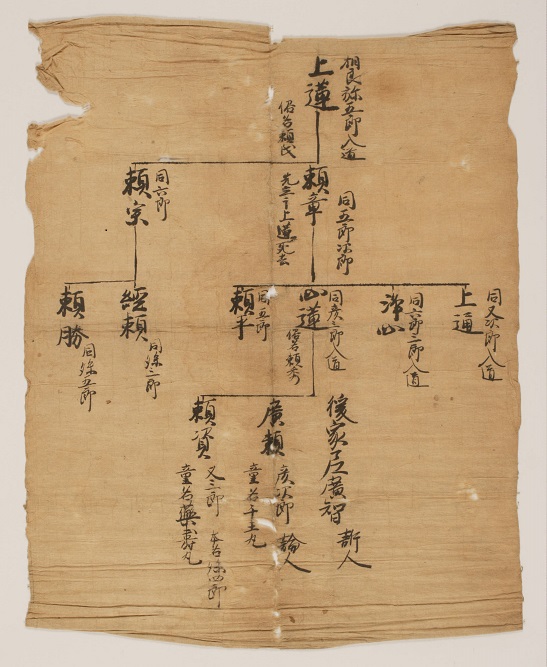 相良弥五郎入道
上蓮
俗名頼氏
同五郎次郎
頼章
先立于上蓮死去
同六郎
頼宗
同又次郎入道
上通
同六郎二郎入道
浄心
同彦三郎入道
心蓮
俗名頼秀
同五郎
頼平
同弥二郎
経頼
同弥五郎
頼勝
後家尼廣智
訴人
廣頼
彦次郎
論人
童名千王丸
頼資
又三郎
本名弥四郎
童名薬寿丸